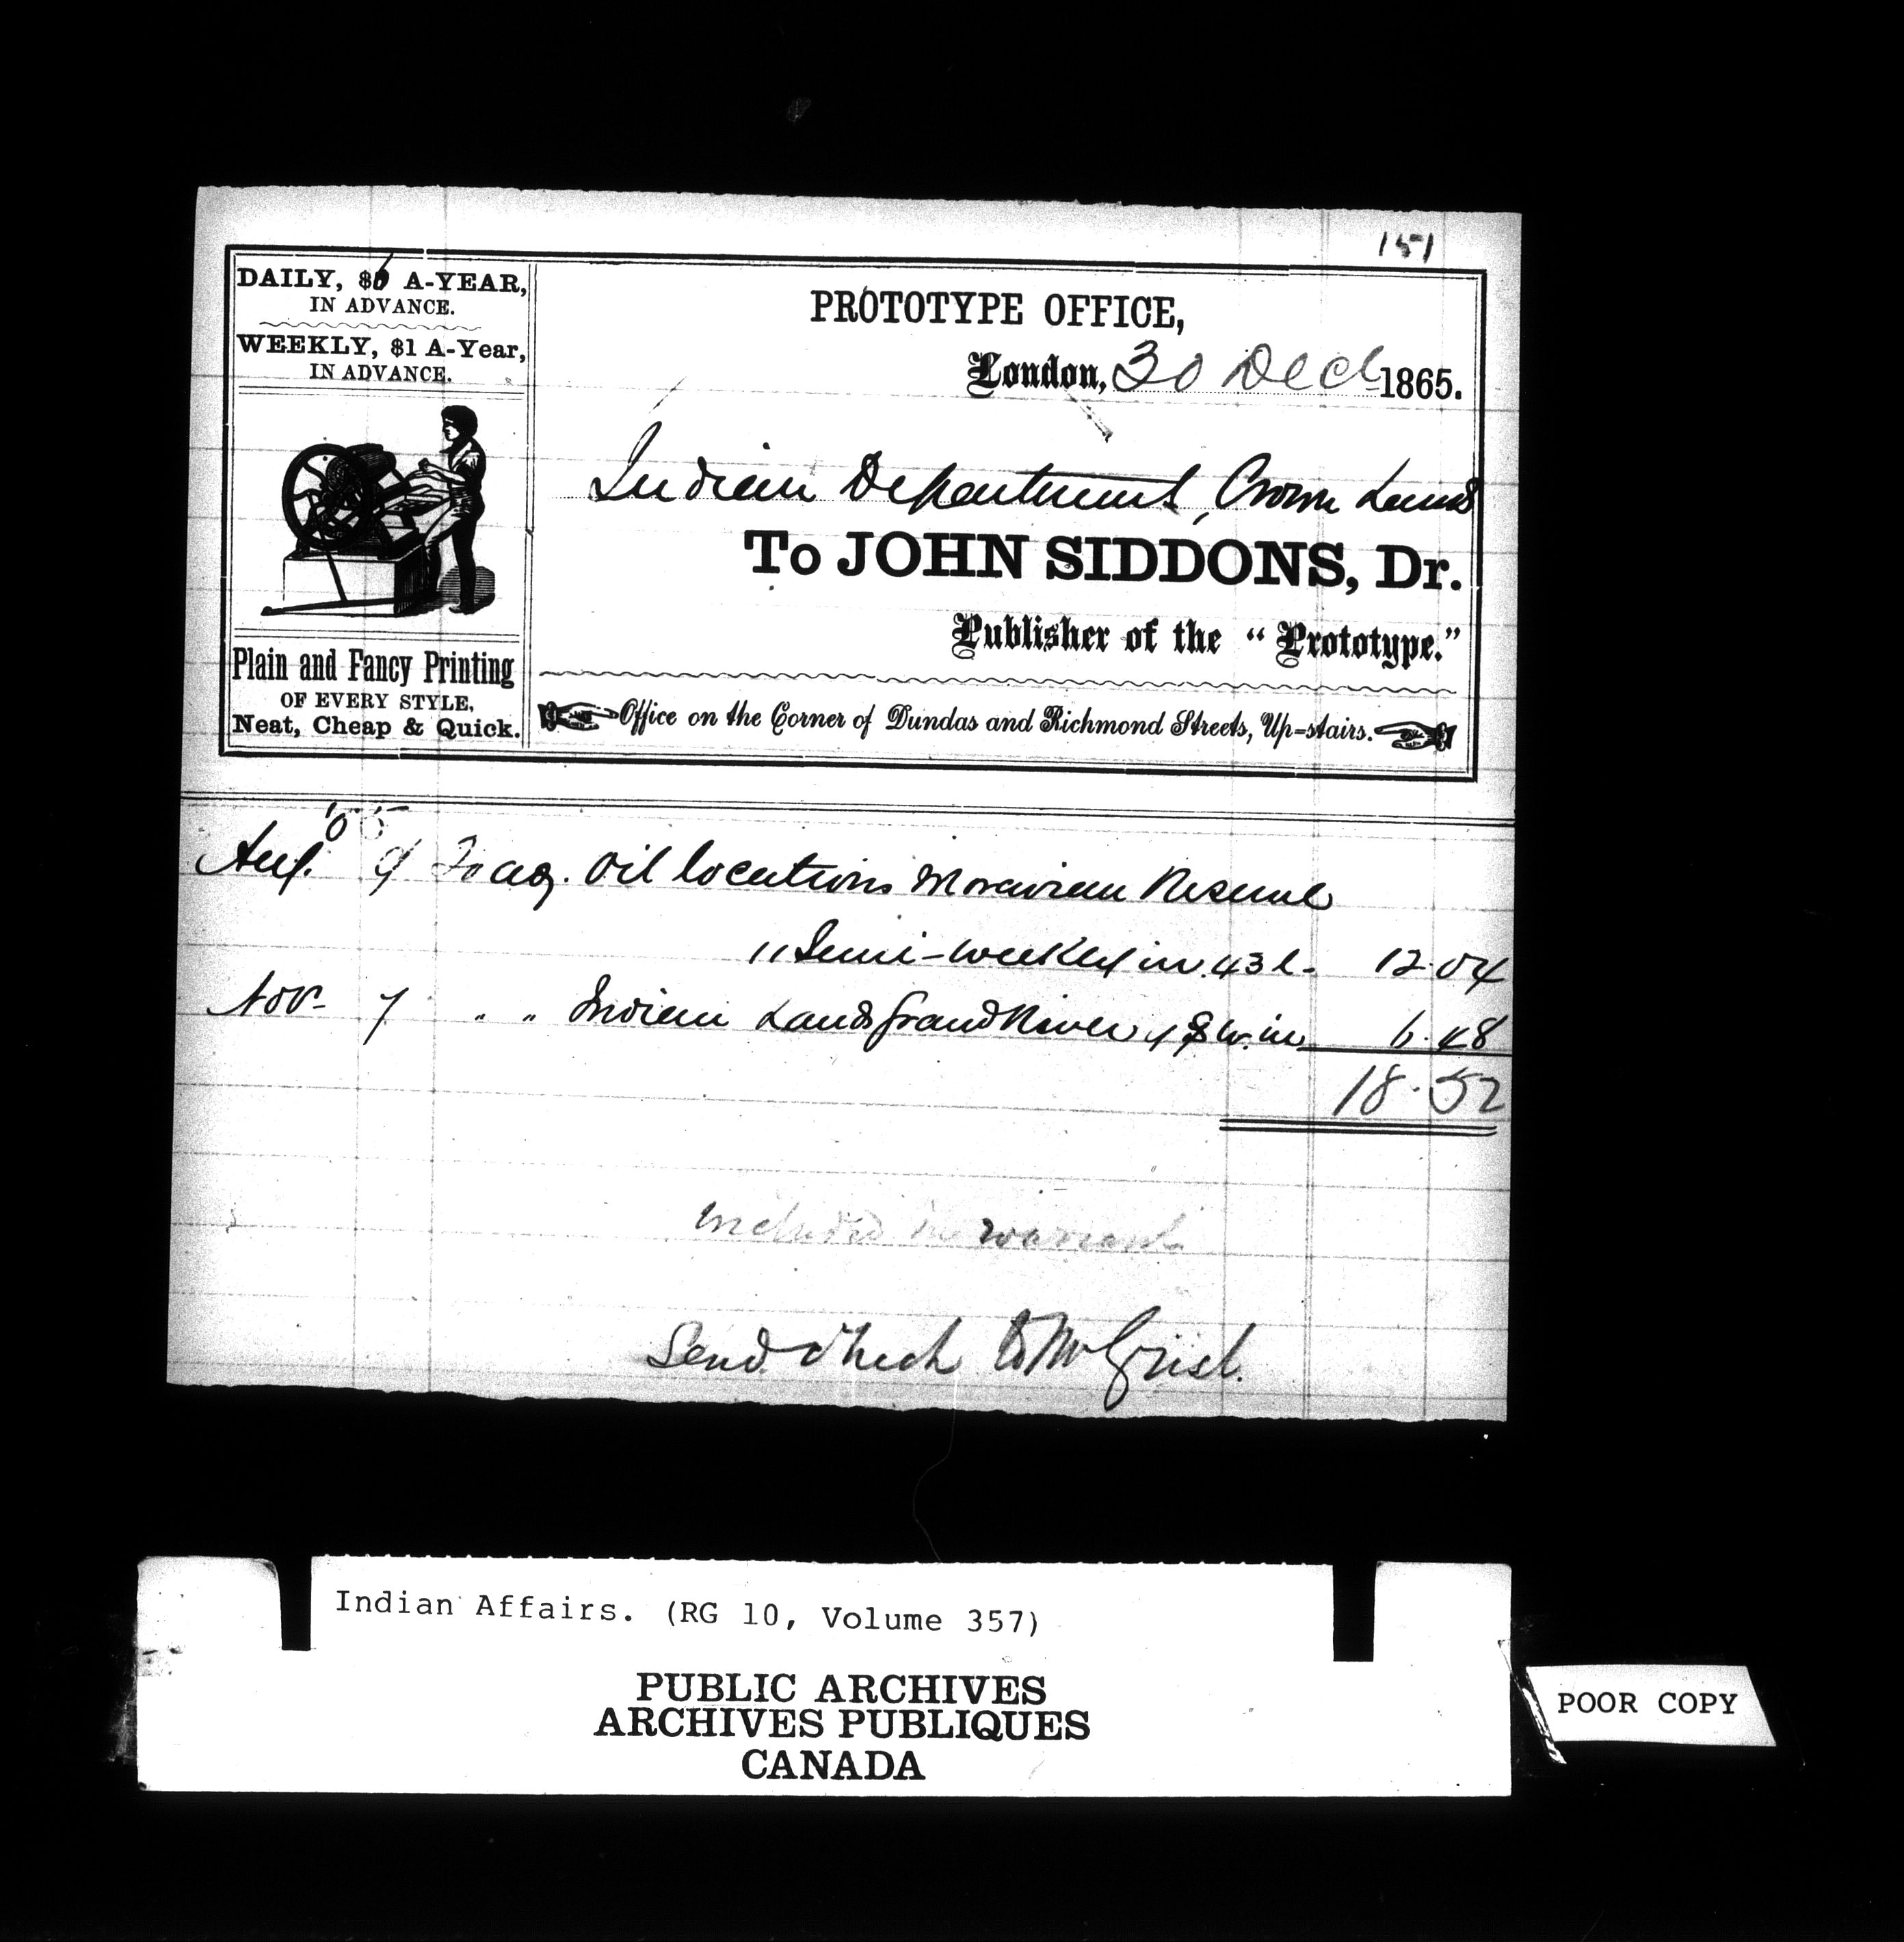 151
DAILY, $6 A-YEAR,
IN ADVANCE.
WEEKLY, $1 A-Year,
IN ADVANCE.
Plain and Fancy Printing
OF EVERY STYLE,
Neat, Cheap & Quick.
PROTOTYPE OFFICE,
London, 30 Decr 1865.
Indian Department, Crown Lands
To JOHN SIDDONS, Dr.
Publisher of the "Prototype."
Office on the Corner of Dundas and Richmond Streets, Up-stairs.
Aug. 9 To adg. Oil locations Moravian Reserve
11 Semi-weekly in. 43 l. 12.04
Nov. 7 " " Indian Lands Grand River, in 6.48
18.52
Included in warrant
Send check to Mr Grist.
Indian Affairs. (RG 10, Volume 357)
PUBLIC ARCHIVES
ARCHIVES PUBLIQUES
CANADA
POOR COPY